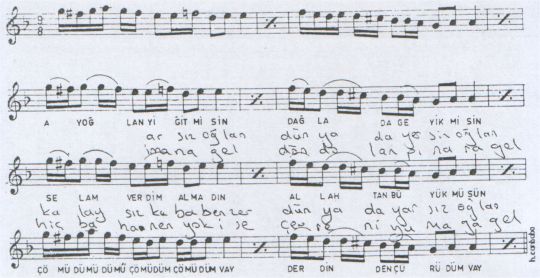 9 8
A YOĞ LAN Yİ ĞİT Mİ SİN DAĞ LA DA GE YİK Mİ SİN
ar sız oğlan dün ya da ye sin oğlan
bana gel dön do lan pı na ra gel
SE LAM VER DİM AL MA DIN AL LAH TAN BÜ YÜK MÜ SÜN
ka lay sız ka ba ben zer dün ya da yar sız oğlan
hiç ba ha nen yok i se çeş me ni yu ma ga gel
ÇÖ MÜ DÜ MÜ DÜ MÜ ÇÖ MÜ DÜM ÇÖ MÜ DÜM VAY DER DİN DEN ÇÜ RÜ DÜM VAY
h.canbaba